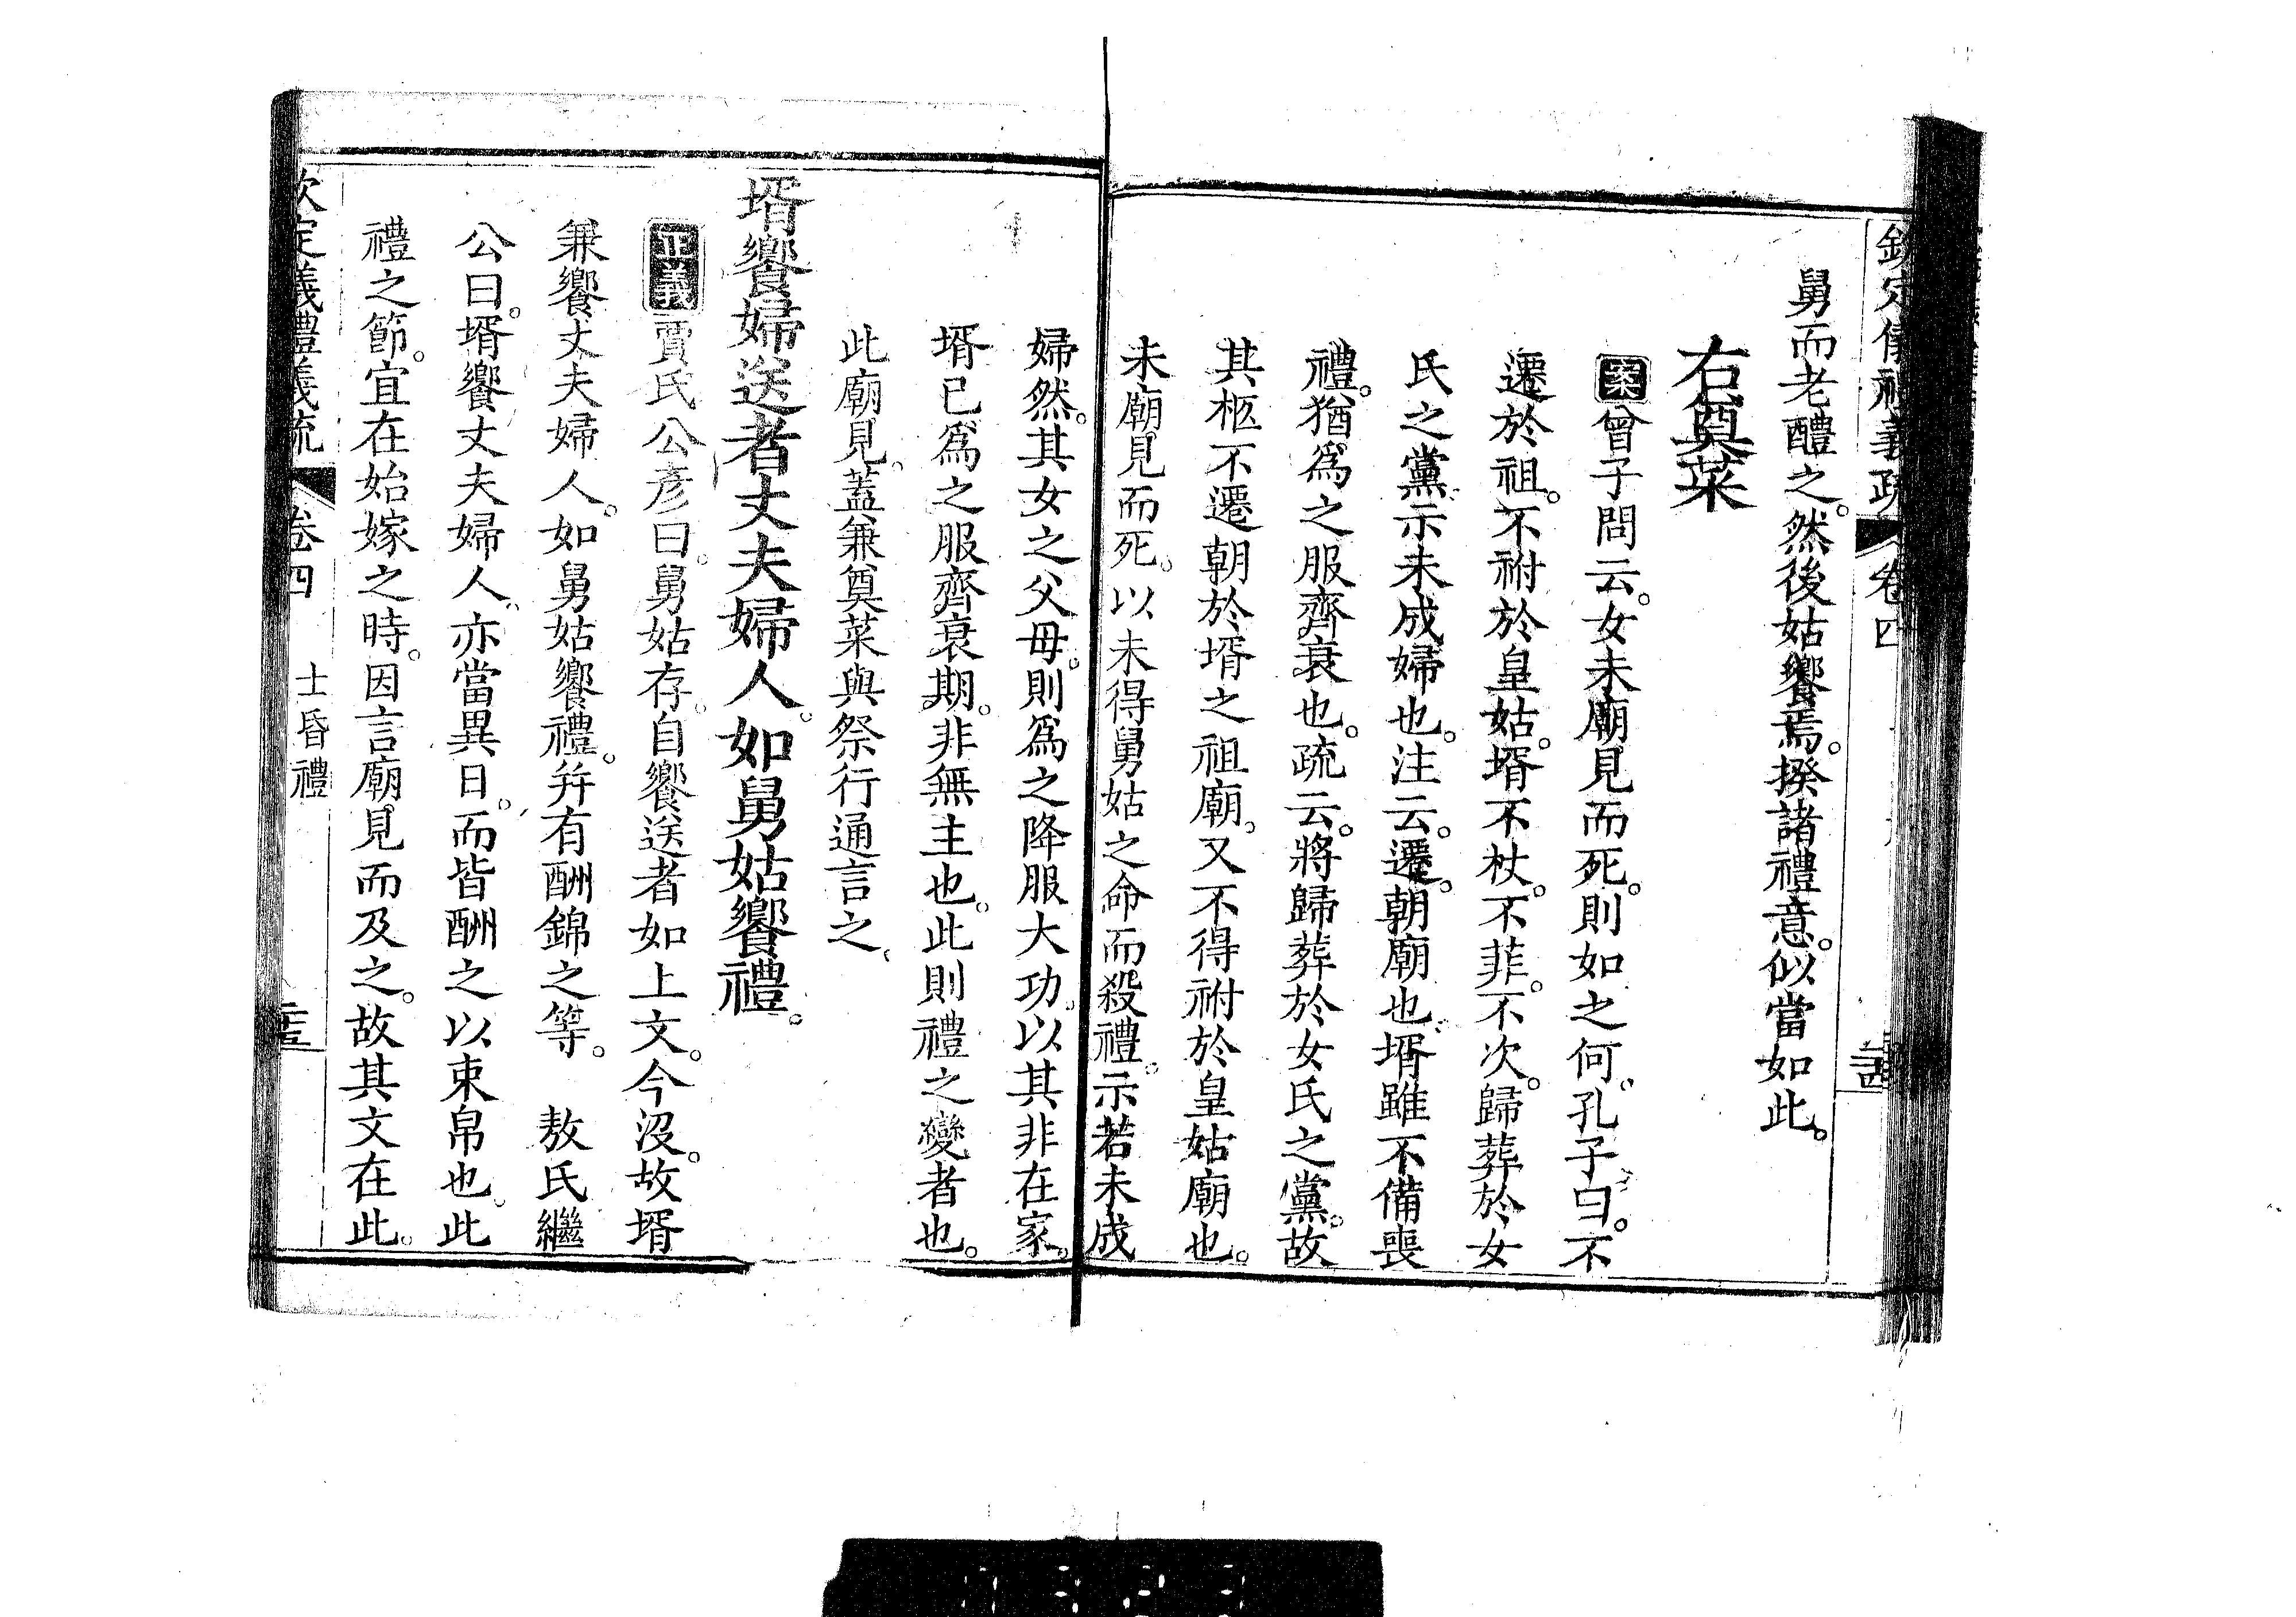 欽定儀禮義疏 卷四
舅而老醴之。然後姑饗焉。揆諸禮意。似當如此。
右奠菜
案 曾子問云。女未廟見而死。則如之何。孔子曰。不
遷於祖。不祔於皇姑。壻不杖。不菲。不次。歸葬於女
氏之黨。示未成婦也。注云。遷。朝廟也。壻雖不備喪
禮。猶爲之服齊衰也。疏云。將歸葬於女氏之黨。故
其柩不遷朝於壻之祖廟。又不得祔於皇姑廟也。
未廟見而死。以未得舅姑之命而殺禮。示若未成
婦然。其女之父母。則爲之降服大功。以其非在家。
壻已爲之服齊衰期。非無主也。此則禮之變者也。
此廟見。蓋兼奠菜與祭行通言之。
壻饗婦送者丈夫婦人。如舅姑饗禮。
正義 賈氏公彥曰。舅姑存。自饗送者如上文。今沒。故壻
兼饗丈夫婦人。如舅姑饗禮。并有酬錦之等。 敖氏繼
公曰。壻饗丈夫婦人。亦當異日。而皆酬之以束帛也。此
禮之節。宜在始嫁之時。因言廟見而及之。故其文在此。
欽定儀禮義疏 卷四 士昏禮